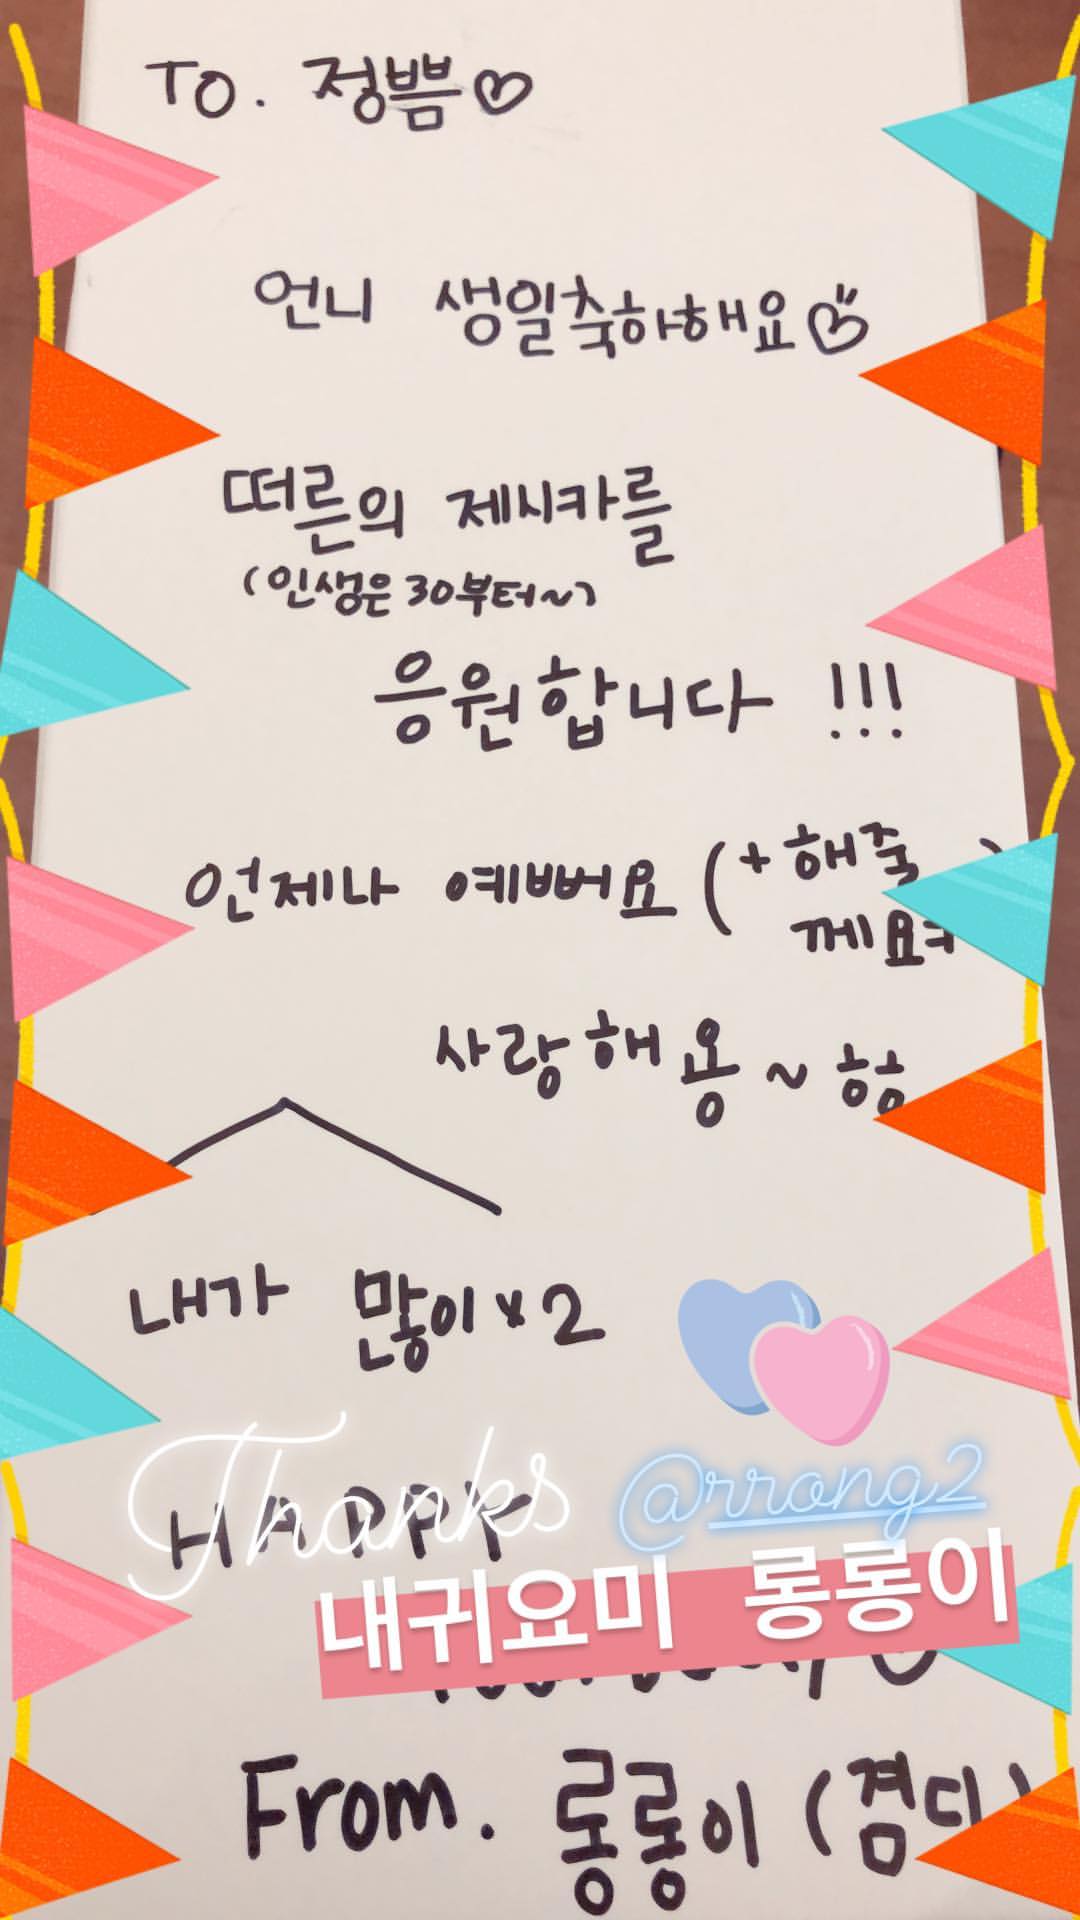 TO. 정쁨♡
언니 생일축하해요♡
떠른의 제시카를
(인생은 30부터~)
응원합니다 !!!
언제나 예뻐요 (+해줄
께요
사랑해용~
내가 많이×2
HAPPY
Thanks @rrong2
내귀요미 롱롱이
From. 롱롱이 (졈디)